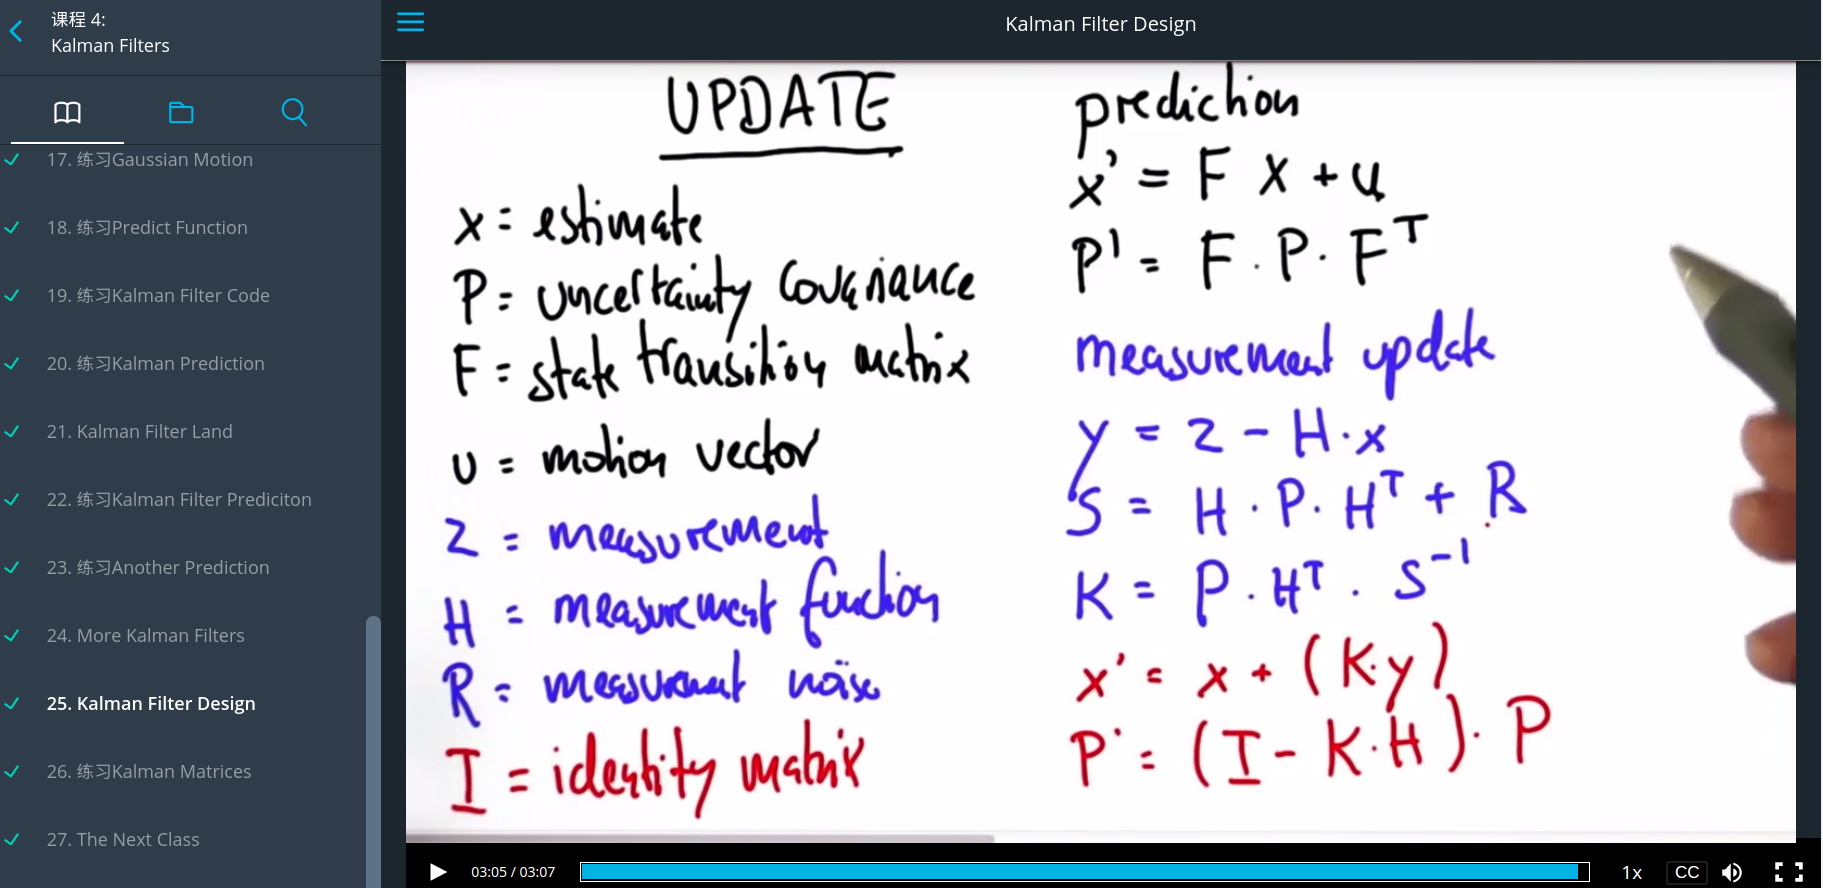 课程 4:
Kalman Filters
17. 练习Gaussian Motion
18. 练习Predict Function
19. 练习Kalman Filter Code
20. 练习Kalman Prediction
21. Kalman Filter Land
22. 练习Kalman Filter Prediciton
23. 练习Another Prediction
24. More Kalman Filters
25. Kalman Filter Design
26. 练习Kalman Matrices
27. The Next Class
Kalman Filter Design
UPDATE
x = estimate
P = uncertainty covariance
F = state transition matrix
u = motion vector
z = measurement
H = measurement function
R = measurement noise
I = identity matrix
prediction
x' = F x + u
P' = F · P · Fᵀ
measurement update
y = z - H · x
S = H · P · Hᵀ + R
K = P · Hᵀ · S⁻¹
x' = x + (K·y)
P' = (I - K·H) · P
03:05 / 03:07
1x
CC